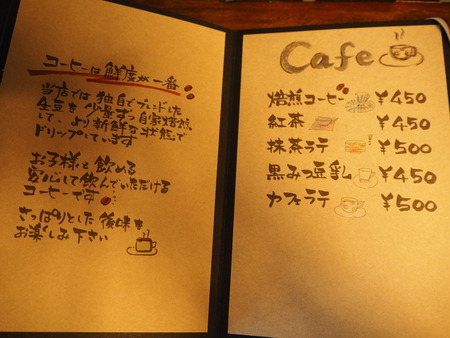 コーヒーは鮮度が一番
当店では独自でブレンドした
生豆を少量ずつ自家焙煎
して、より新鮮な状態で
ドリップしています
お子様と飲める
安心して飲んでいただける
コーヒーです
さっぱりとした後味を
お楽しみ下さい
Cafe
焙煎コーヒー ¥450
紅茶 ¥450
抹茶ラテ ¥500
黒みつ豆乳 ¥450
カフェラテ ¥500